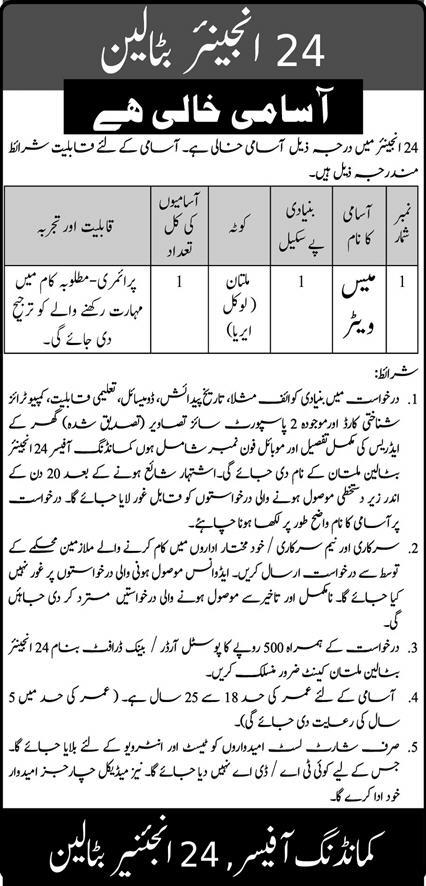 24 انجینئر بٹالین
آسامی خالی ھے
24 انجینئر میں درجہ ذیل آسامی خالی ہے۔ آسامی کے لئے قابلیت شرائط
مندرجہ ذیل ہیں۔
نمبر شمار | آسامی کا نام | بنیادی پے سکیل | کوٹہ | آسامیوں کی کل تعداد | قابلیت اور تجربہ
1 | میس ویٹر | 1 | ملتان (لوکل ایریا) | 1 | پرائمری-مطلوبہ کام میں مہارت رکھنے والے کو ترجیح دی جائے گی۔
شرائط:
1. درخواست میں بنیادی کوائف مثلا، تاریخ پیدائش، ڈومیسائل، تعلیمی قابلیت، کمپیوٹرائز
شناختی کارڈ اور موجودہ 2 پاسپورٹ سائز تصاویر (تصدیق شدہ) گھر کے
ایڈریس کی مکمل تفصیل اور موبائل فون نمبر شامل ہوں کمانڈنگ آفیسر 24 انجینئر
بٹالین ملتان کے نام دی جائے گی۔ اشتہار شائع ہونے کے بعد 20 دن کے
اندر زیر دستخطی موصول ہونے والی درخواستوں کو قابل غور لایا جائے گا۔ درخواست
پر آسامی کا نام واضح طور پر لکھا ہونا چاہئے۔
2. سرکاری اور نیم سرکاری / خود مختار اداروں میں کام کرنے والے ملازمین محکمے کے
توسط سے درخواست ارسال کریں۔ ایڈوانس موصول ہونی والی درخواستوں پر غور نہیں
کیا جائے گا۔ نامکمل اور تاخیر سے موصول ہونے والی درخواستیں مسترد کر دی جائیں
گی۔
3. درخواست کے ہمراہ 500 روپے کا پوسٹل آرڈر / بینک ڈرافٹ بنام 24 انجینئر
بٹالین ملتان کینٹ ضرور منسلک کریں۔
4. آسامی کے لئے عمر کی حد 18 سے 25 سال ہے۔ (عمر کی حد میں 5
سال کی رعایت دی جائے گی)۔
5. صرف شارٹ لسٹ امیدواروں کو ٹیسٹ اور انٹرویو کے لئے بلایا جائے گا۔
جس کے لیے کوئی ٹی اے / ڈی اے نہیں دیا جائے گا۔ نیز میڈیکل چارجز امیدوار
خود ادا کرے گا۔
کمانڈنگ آفیسر, 24 انجئنیر بٹالین